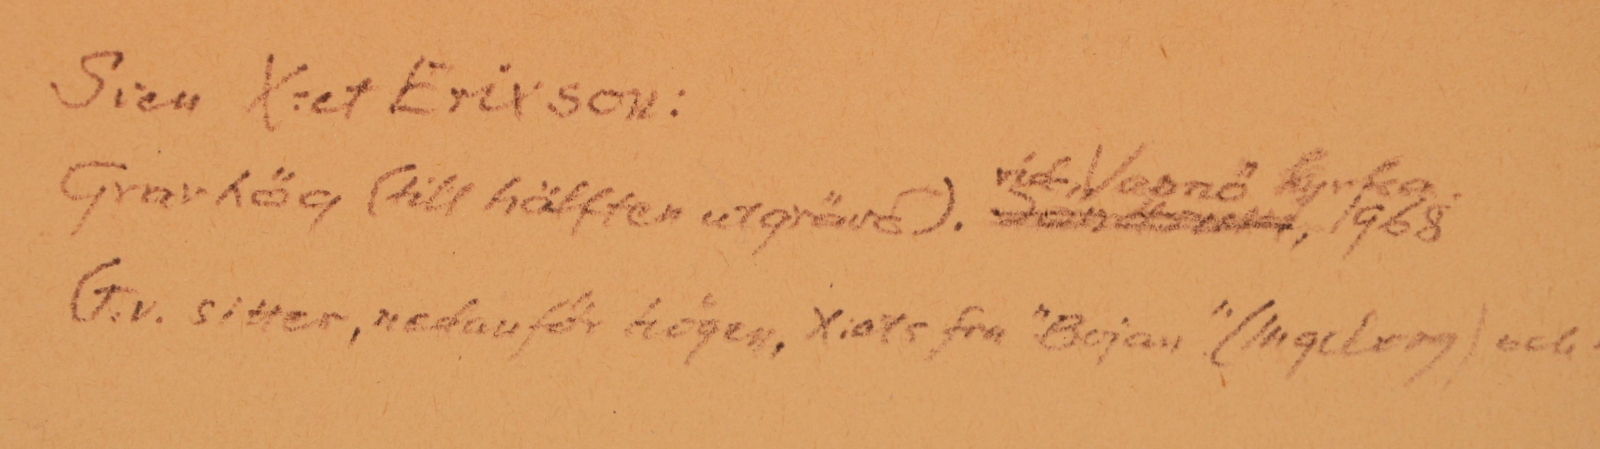 Sven X:et Erixson:
Gravhög (till hälften utgrävd). vid Vapnö kyrka, 1968
T.v. sitter, nedanför högen, X:ets fru "Bojan" (Ingeborg) och